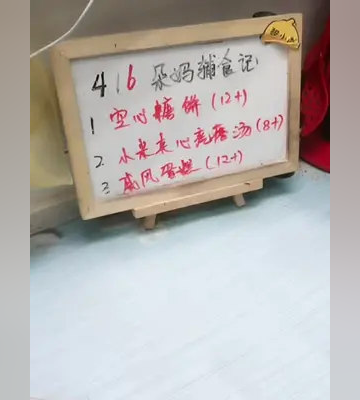 416 朵妈辅食记
1 空心糖饼(12+)
2 小米夹心汤(8+)
3 戚风蛋糕(12+)